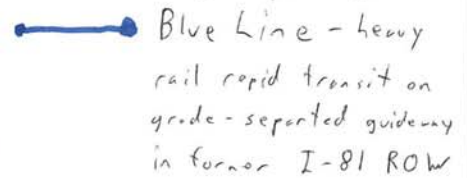 Blue Line - heavy
rail rapid transit on
grade-separted guideway
in former I-81 ROW